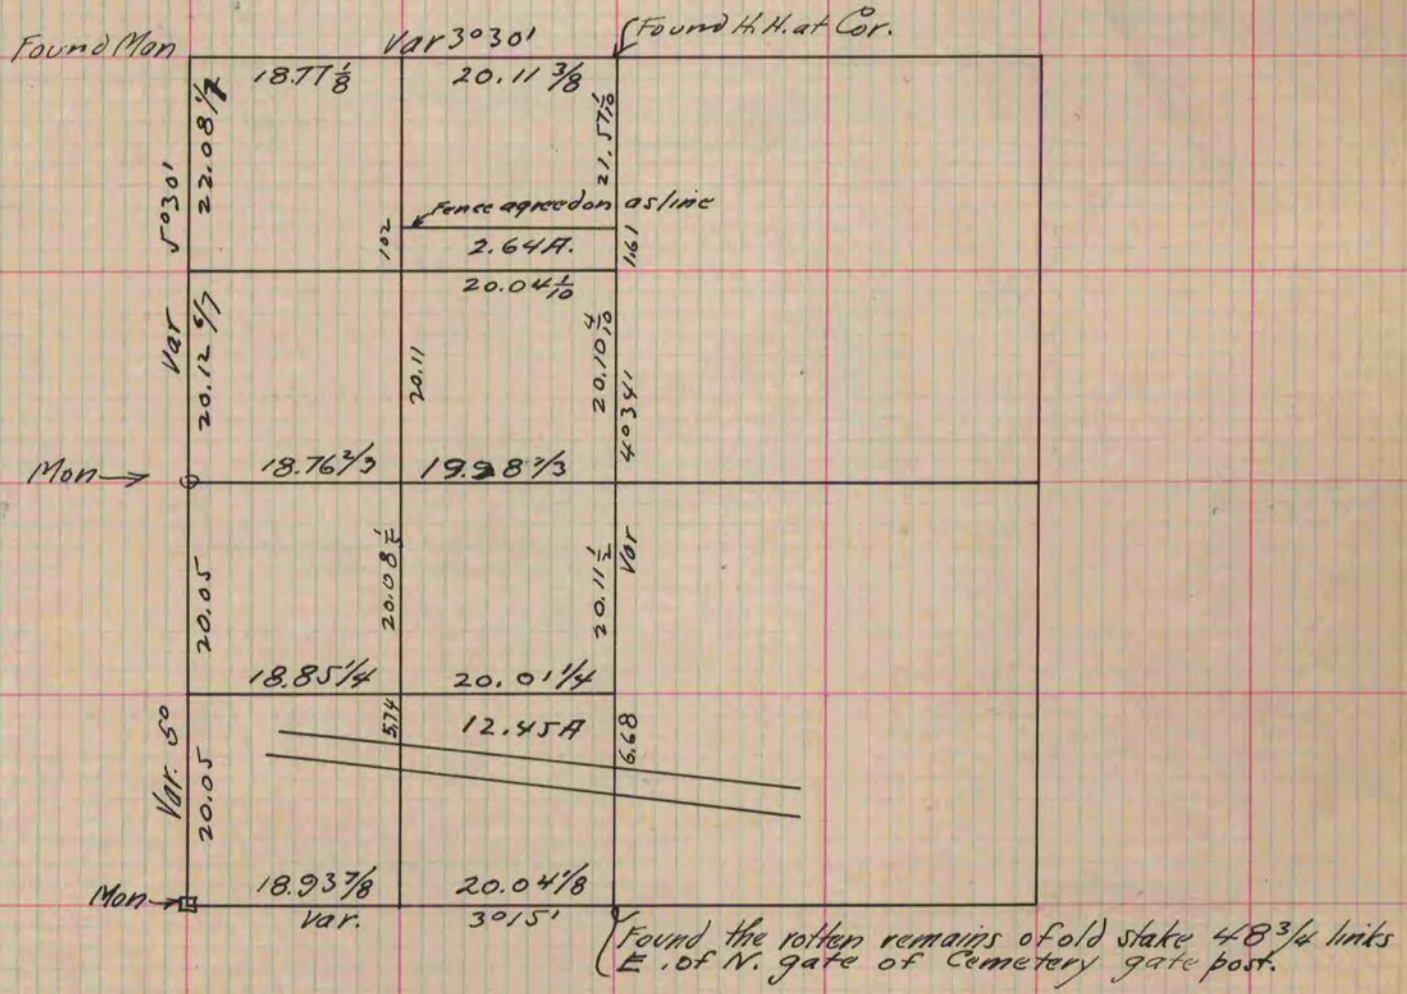 Found H.H. at Cor.
Found Mon
Var 3°30'
18.77 1/8
20.11 3/8
22.08 1/2
21.57 1/10
5°30'
Fence agreed on as line
102
2.64 A.
1.61
20.04 1/10
Var
20.12 6/7
20.11
20.10 4/10
4°34'
Mon
18.76 2/3
19.98 2/3
20.05
20.08 1/2
20.11 1/2
Var
18.85 1/4
20.01 1/4
5.74
12.45 A
6.68
Var. 5°
20.05
Mon
18.93 7/8
20.04 1/8
Var.
3°15'
Found the rotten remains of old stake 48 3/4 links
E. of N. gate of Cemetery gate post.